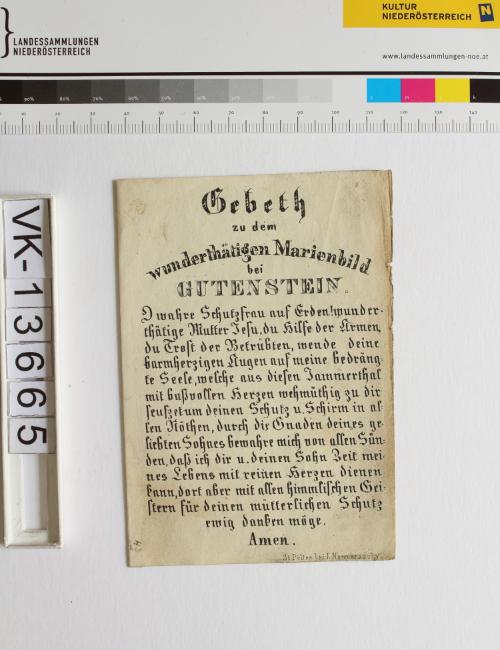 LANDESSAMMLUNGEN
NIEDERÖSTERREICH
KULTUR
NIEDERÖSTERREICH
N
www.landessammlungen-noe.at
VK-13665
Gebeth
zu dem
wunderthätigen Marienbild
bei
GUTENSTEIN.
O wahre Schutzfrau auf Erden! wunder-
thätige Mutter Jesu, du Hilfe der Armen,
du Trost der Betrübten, wende deine
barmherzigen Augen auf meine bedräng-
te Seele, welche aus diesen Jammerthal
mit bußvollen Herzen wehmüthig zu dir
seufzet um deinen Schutz u. Schirm in al-
len Nöthen, durch die Gnaden deines ge-
liebten Sohnes bewahre mich von allen Sün-
den, daß ich dir u. deinen Sohn Zeit mei-
nes Lebens mit reinen Herzen dienen
kann, dort aber mit allen himmlischen Gei-
stern für deinen mütterlichen Schutz
ewig danken möge.
Amen.
St. Pölten bei